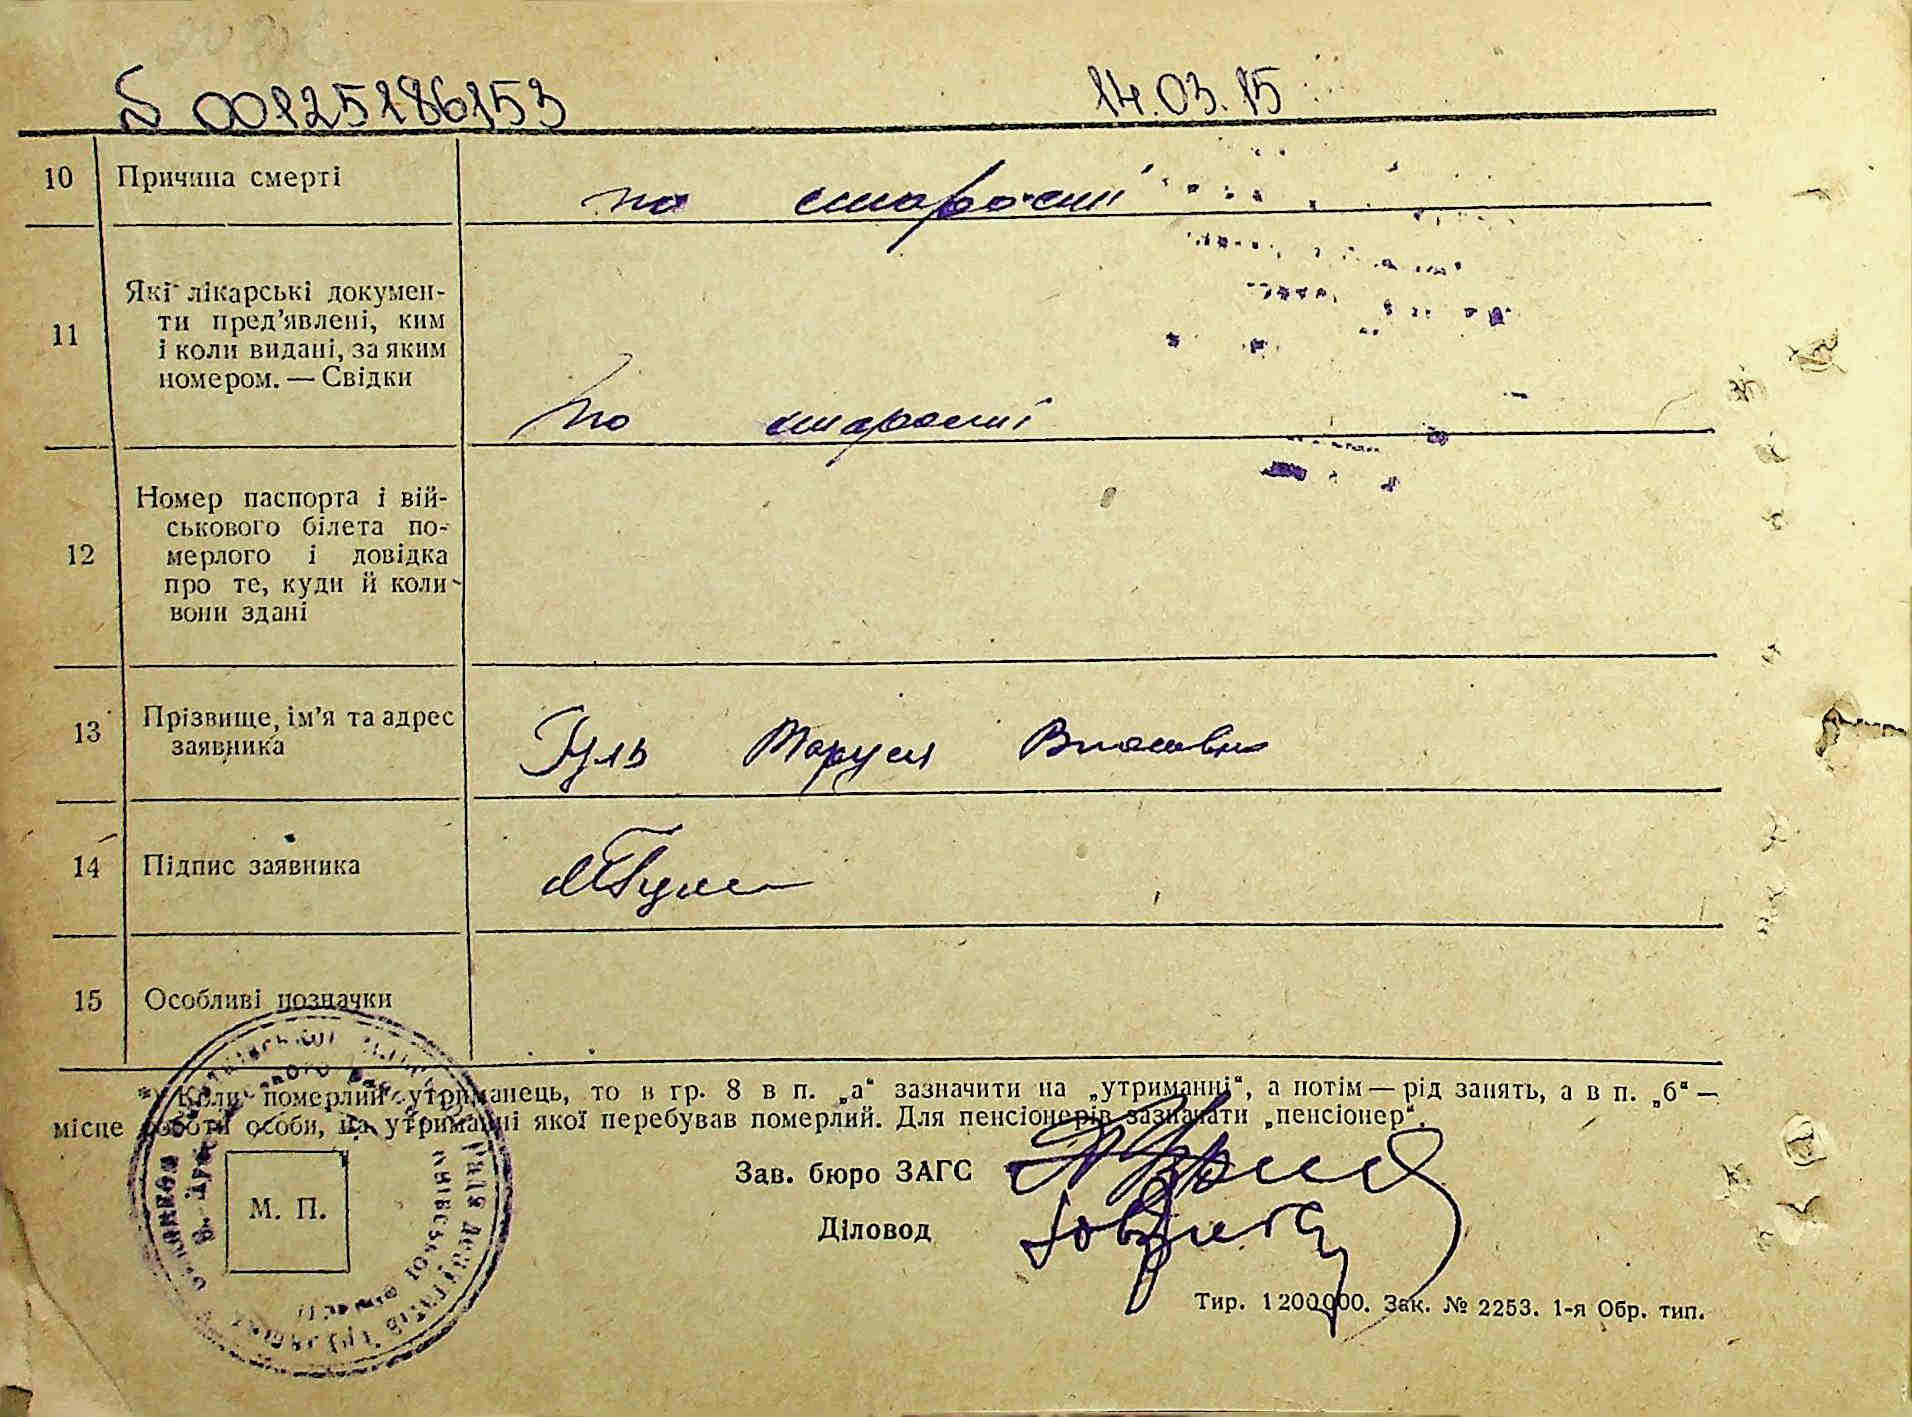 № 00125186153 14.03.15
10 Причина смерті по старості
11 Які лікарські докумен-
ти пред'явлені, ким
і коли видані, за яким
номером. — Свідки по старості
12 Номер паспорта і вій-
ськового білета по-
мерлого і довідка
про те, куди й коли
вони здані
13 Прізвище, ім'я та адрес
заявника Гуль Маруся Власівна
14 Підпис заявника МГуль
15 Особливі позначки
*) Коли померлий утриманець, то в гр. 8 в п. „а“ зазначити на „утриманні“, а потім — рід занять, а в п. „б“ —
місце роботи особи, на утриманні якої перебував померлий. Для пенсіонерів зазначати „пенсіонер“.
М. П.
Зав. бюро ЗАГС
Діловод
Тир. 1200000. Зак. № 2253. 1-я Обр. тип.